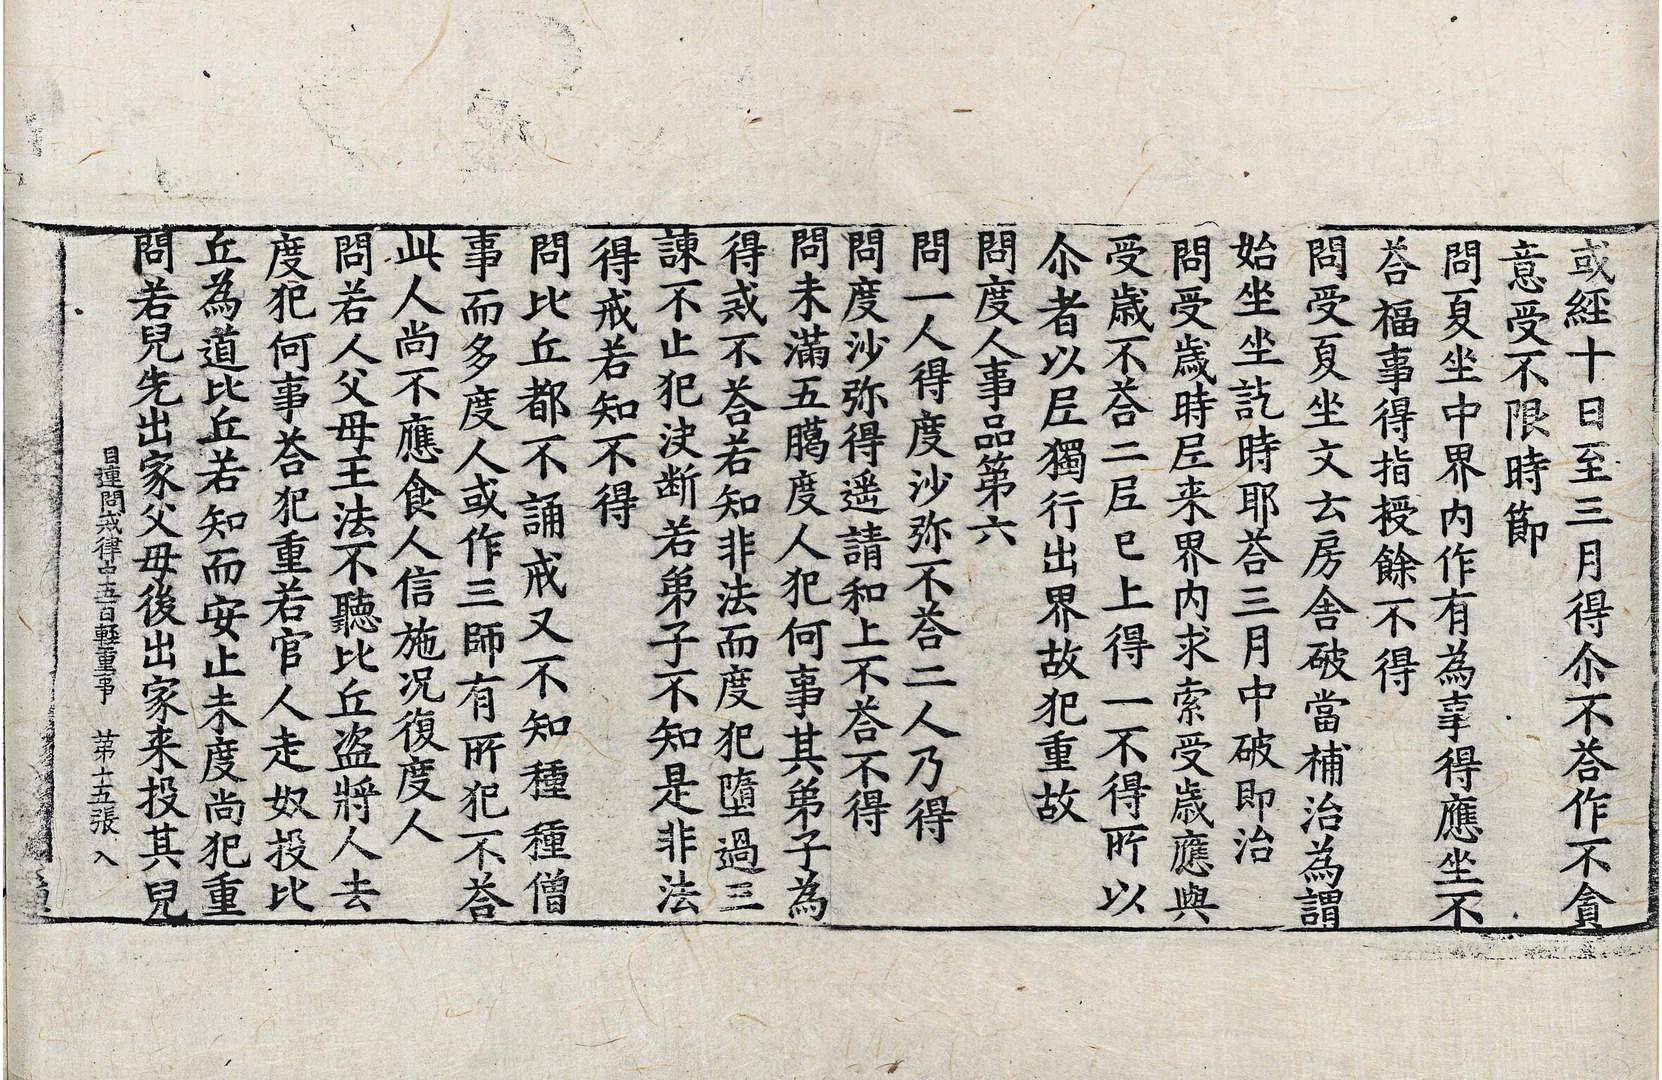 或經十日至三月得尒不荅作不貪
意受不限時節
問夏坐中界內作有為事得應坐不
荅福事得指授餘不得
問受夏坐文云房舍破當補治為謂
始坐坐訖時耶荅三月中破即治
問受歲時尼来界內求索受歲應與
受歲不荅二尼已上得一不得所以
尒者以尼獨行出界故犯重故
問度人事品第六
問一人得度沙弥不荅二人乃得
問度沙弥得遥請和上不荅不得
問未滿五臈度人犯何事其弟子為
得戒不荅若知非法而度犯墮過三
諫不止犯決断若弟子不知是非法
得戒若知不得
問比丘都不誦戒又不知種種僧
事而多度人或作三師有所犯不荅
此人尚不應食人信施况復度人
問若人父母王法不聽比丘盜將人去
度犯何事荅犯重若官人走奴投比
丘為道比丘若知而安止未度尚犯重
問若兒先出家父母後出家来投其兒
目連問戒律中五百輕重事　苐十五張　入